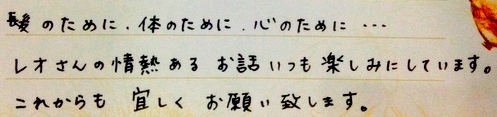 髪のために、体のために、心のために…
レオさんの情熱ある お話いつも楽しみにしています。
これからも 宜しく お願い致します。